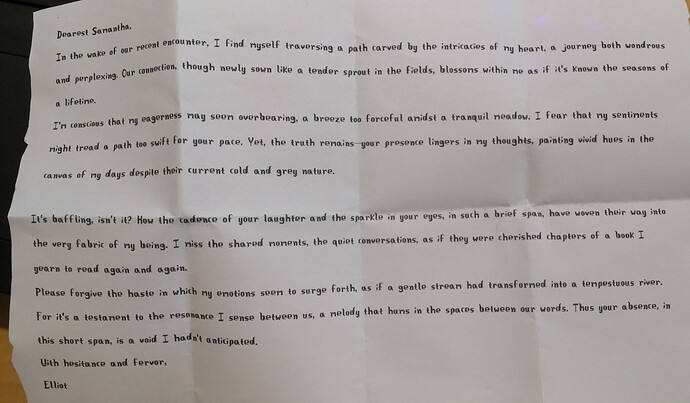 Dearest Samantha,
In the wake of our recent encounter, I find myself traversing a path carved by the intricacies of my heart, a journey both wondrous
and perplexing. Our connection, though newly sown like a tender sprout in the fields, blossoms within me as if it's known the seasons of
a lifetime.
I'm conscious that my eagerness may seem overbearing, a breeze too forceful amidst a tranquil meadow. I fear that my sentiments
might tread a path too swift for your pace. Yet, the truth remains—your presence lingers in my thoughts, painting vivid hues in the
canvas of my days despite their current cold and grey nature.
It's baffling, isn't it? How the cadence of your laughter and the sparkle in your eyes, in such a brief span, have woven their way into
the very fabric of my being. I miss the shared moments, the quiet conversations, as if they were cherished chapters of a book I
yearn to read again and again.
Please forgive the haste in which my emotions seem to surge forth, as if a gentle stream had transformed into a tempestuous river.
For it's a testament to the resonance I sense between us, a melody that hums in the spaces between our words. Thus your absence, in
this short span, is a void I hadn't anticipated.
With hesitance and fervor,
Elliot